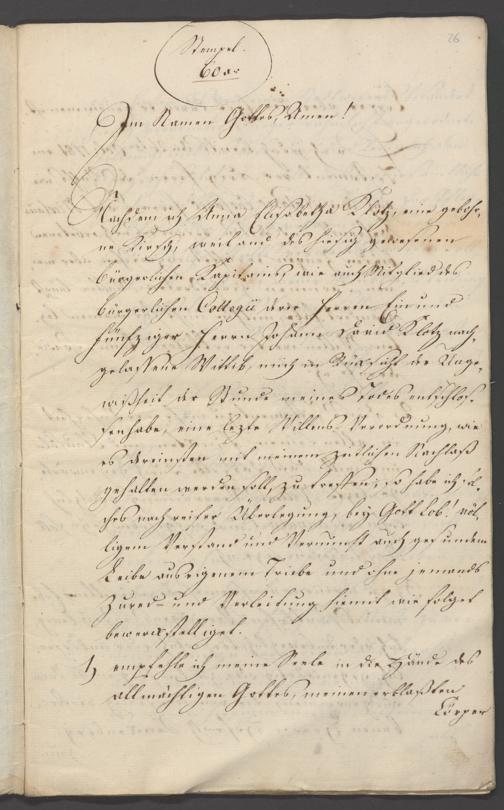 26
Stempel.
60 xr
Im Namen Gottes, Amen!
Nachdem ich Anna Elisabetha Klotz, eine gebohr-
ne Kirsch, weiland des hiesig gewesenen
bürgerlichen Kapitains wie auch Mitglied des
bürgerlichen Collegii derer Herren Ein und
fünfziger Herrn Johann David Klotz nach-
gelassene Wittib, mich in Rücksicht der Unge-
wißheit der Stunde meines Todes entschlos-
sen habe, eine lezte Willens Verordnung, wie
es dereinsten mit meinem zeitlichen Nachlaß
gehalten werden soll, zu treffen; so habe ich sol-
ches nach reifer Überlegung, bey Gott Lob! völ-
ligem Verstand und Vernunft auch gesundem
Leibe aus eigenem Triebe und ohne jemands
Zured- und Verleitung hiemit wie folget
bewerckstelliget.
1) empfehle ich meine Seele in die Hände des
allmächtigen Gottes, meinen erblaßten
Körper